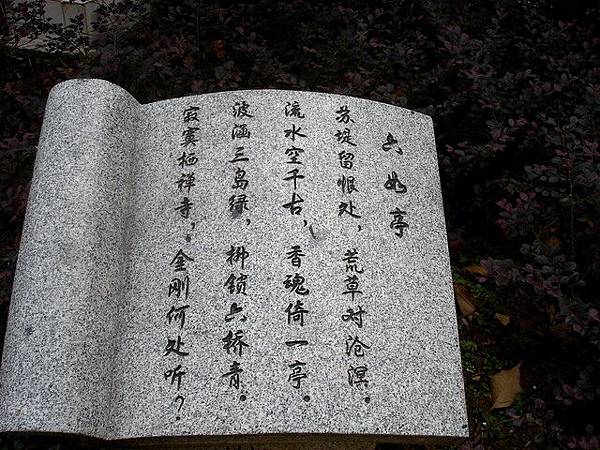 六如亭
苏堤留恨处，荒草对沧溟。
流水空千古，香魂倚一亭。
波涵三岛绿，柳锁六桥青。
寂寞栖禅寺，金刚何处听？